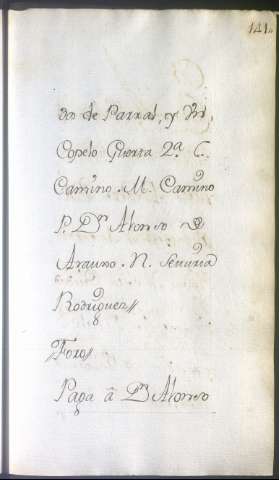 141
dos de Parral, y Vn,
Copelo Guerra 2ª C.
Camino. M. Camino
P. Dn Alonso de
Arauxo. N.
Rodriguez//
Foro//
Paga â Dn Alonso